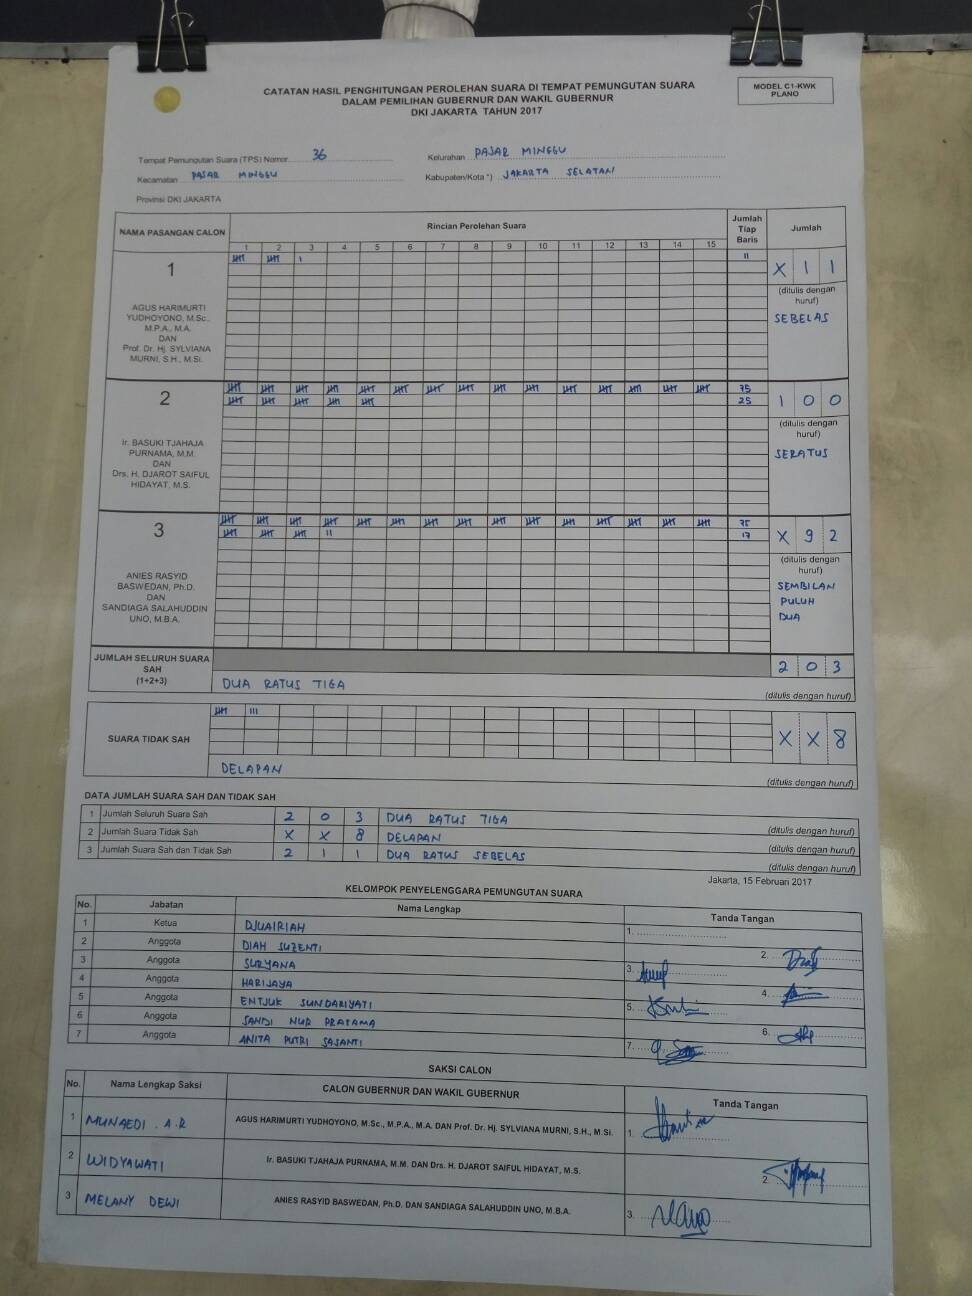 CATATAN HASIL PENGHITUNGAN PEROLEHAN SUARA DI TEMPAT PEMUNGUTAN SUARA
DALAM PEMILIHAN GUBERNUR DAN WAKIL GUBERNUR
DKI JAKARTA TAHUN 2017
MODEL C1-KWK
PLANO
Tempat Pemungutan Suara (TPS) Nomor 36
Kelurahan PASAR MINGGU
Kecamatan PASAR MINGGU
Kabupaten/Kota *) JAKARTA SELATAN
Provinsi DKI JAKARTA
NAMA PASANGAN CALON
Rincian Perolehan Suara
Jumlah Tiap Baris
Jumlah
1 2 3 4 5 6 7 8 9 10 11 12 13 14 15
1
11
X 1 1
(ditulis dengan huruf)
SEBELAS
AGUS HARIMURTI
YUDHOYONO, M.Sc.,
M.P.A., M.A.
DAN
Prof. Dr. Hj. SYLVIANA
MURNI, S.H., M.Si.
2
75
25
1 0 0
(ditulis dengan huruf)
SERATUS
Ir. BASUKI TJAHAJA
PURNAMA, M.M.
DAN
Drs. H. DJAROT SAIFUL
HIDAYAT, M.S.
3
75
17
X 9 2
(ditulis dengan huruf)
SEMBILAN
PULUH
DUA
ANIES RASYID
BASWEDAN, Ph.D.
DAN
SANDIAGA SALAHUDDIN
UNO, M.B.A.
JUMLAH SELURUH SUARA
SAH
(1+2+3)
2 0 3
DUA RATUS TIGA
(ditulis dengan huruf)
SUARA TIDAK SAH
X X 8
DELAPAN
(ditulis dengan huruf)
DATA JUMLAH SUARA SAH DAN TIDAK SAH
1 Jumlah Seluruh Suara Sah 2 0 3 DUA RATUS TIGA (ditulis dengan huruf)
2 Jumlah Suara Tidak Sah X X 8 DELAPAN (ditulis dengan huruf)
3 Jumlah Suara Sah dan Tidak Sah 2 1 1 DUA RATUS SEBELAS (ditulis dengan huruf)
Jakarta, 15 Februari 2017
KELOMPOK PENYELENGGARA PEMUNGUTAN SUARA
No. Jabatan Nama Lengkap Tanda Tangan
1 Ketua DJUAIRIAH 1.
2 Anggota DIAH SUZENTI 2.
3 Anggota SURYANA 3.
4 Anggota HARIJAYA 4.
5 Anggota ENTJUK SUNDARIYATI 5.
6 Anggota SANDI NUR PRATAMA 6.
7 Anggota ANITA PUTRI SASANTI 7.
SAKSI CALON
No. Nama Lengkap Saksi CALON GUBERNUR DAN WAKIL GUBERNUR Tanda Tangan
1 MUNAEDI . A.R AGUS HARIMURTI YUDHOYONO, M.Sc., M.P.A., M.A. DAN Prof. Dr. Hj. SYLVIANA MURNI, S.H., M.Si. 1.
2 WIDYAWATI Ir. BASUKI TJAHAJA PURNAMA, M.M. DAN Drs. H. DJAROT SAIFUL HIDAYAT, M.S. 2.
3 MELANY DEWI ANIES RASYID BASWEDAN, Ph.D. DAN SANDIAGA SALAHUDDIN UNO, M.B.A. 3.